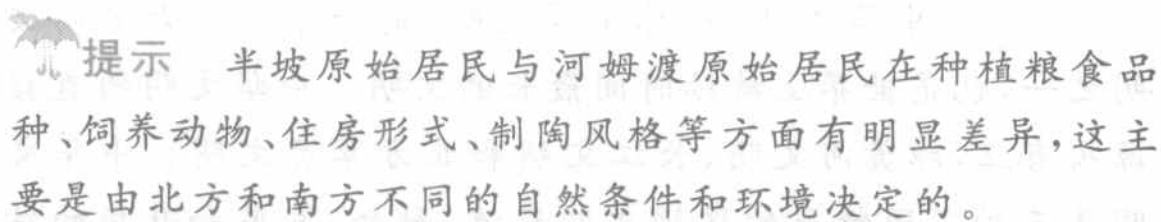 提示 半坡原始居民与河姆渡原始居民在种植粮食品
种、饲养动物、住房形式、制陶风格等方面有明显差异,这主
要是由北方和南方不同的自然条件和环境决定的。